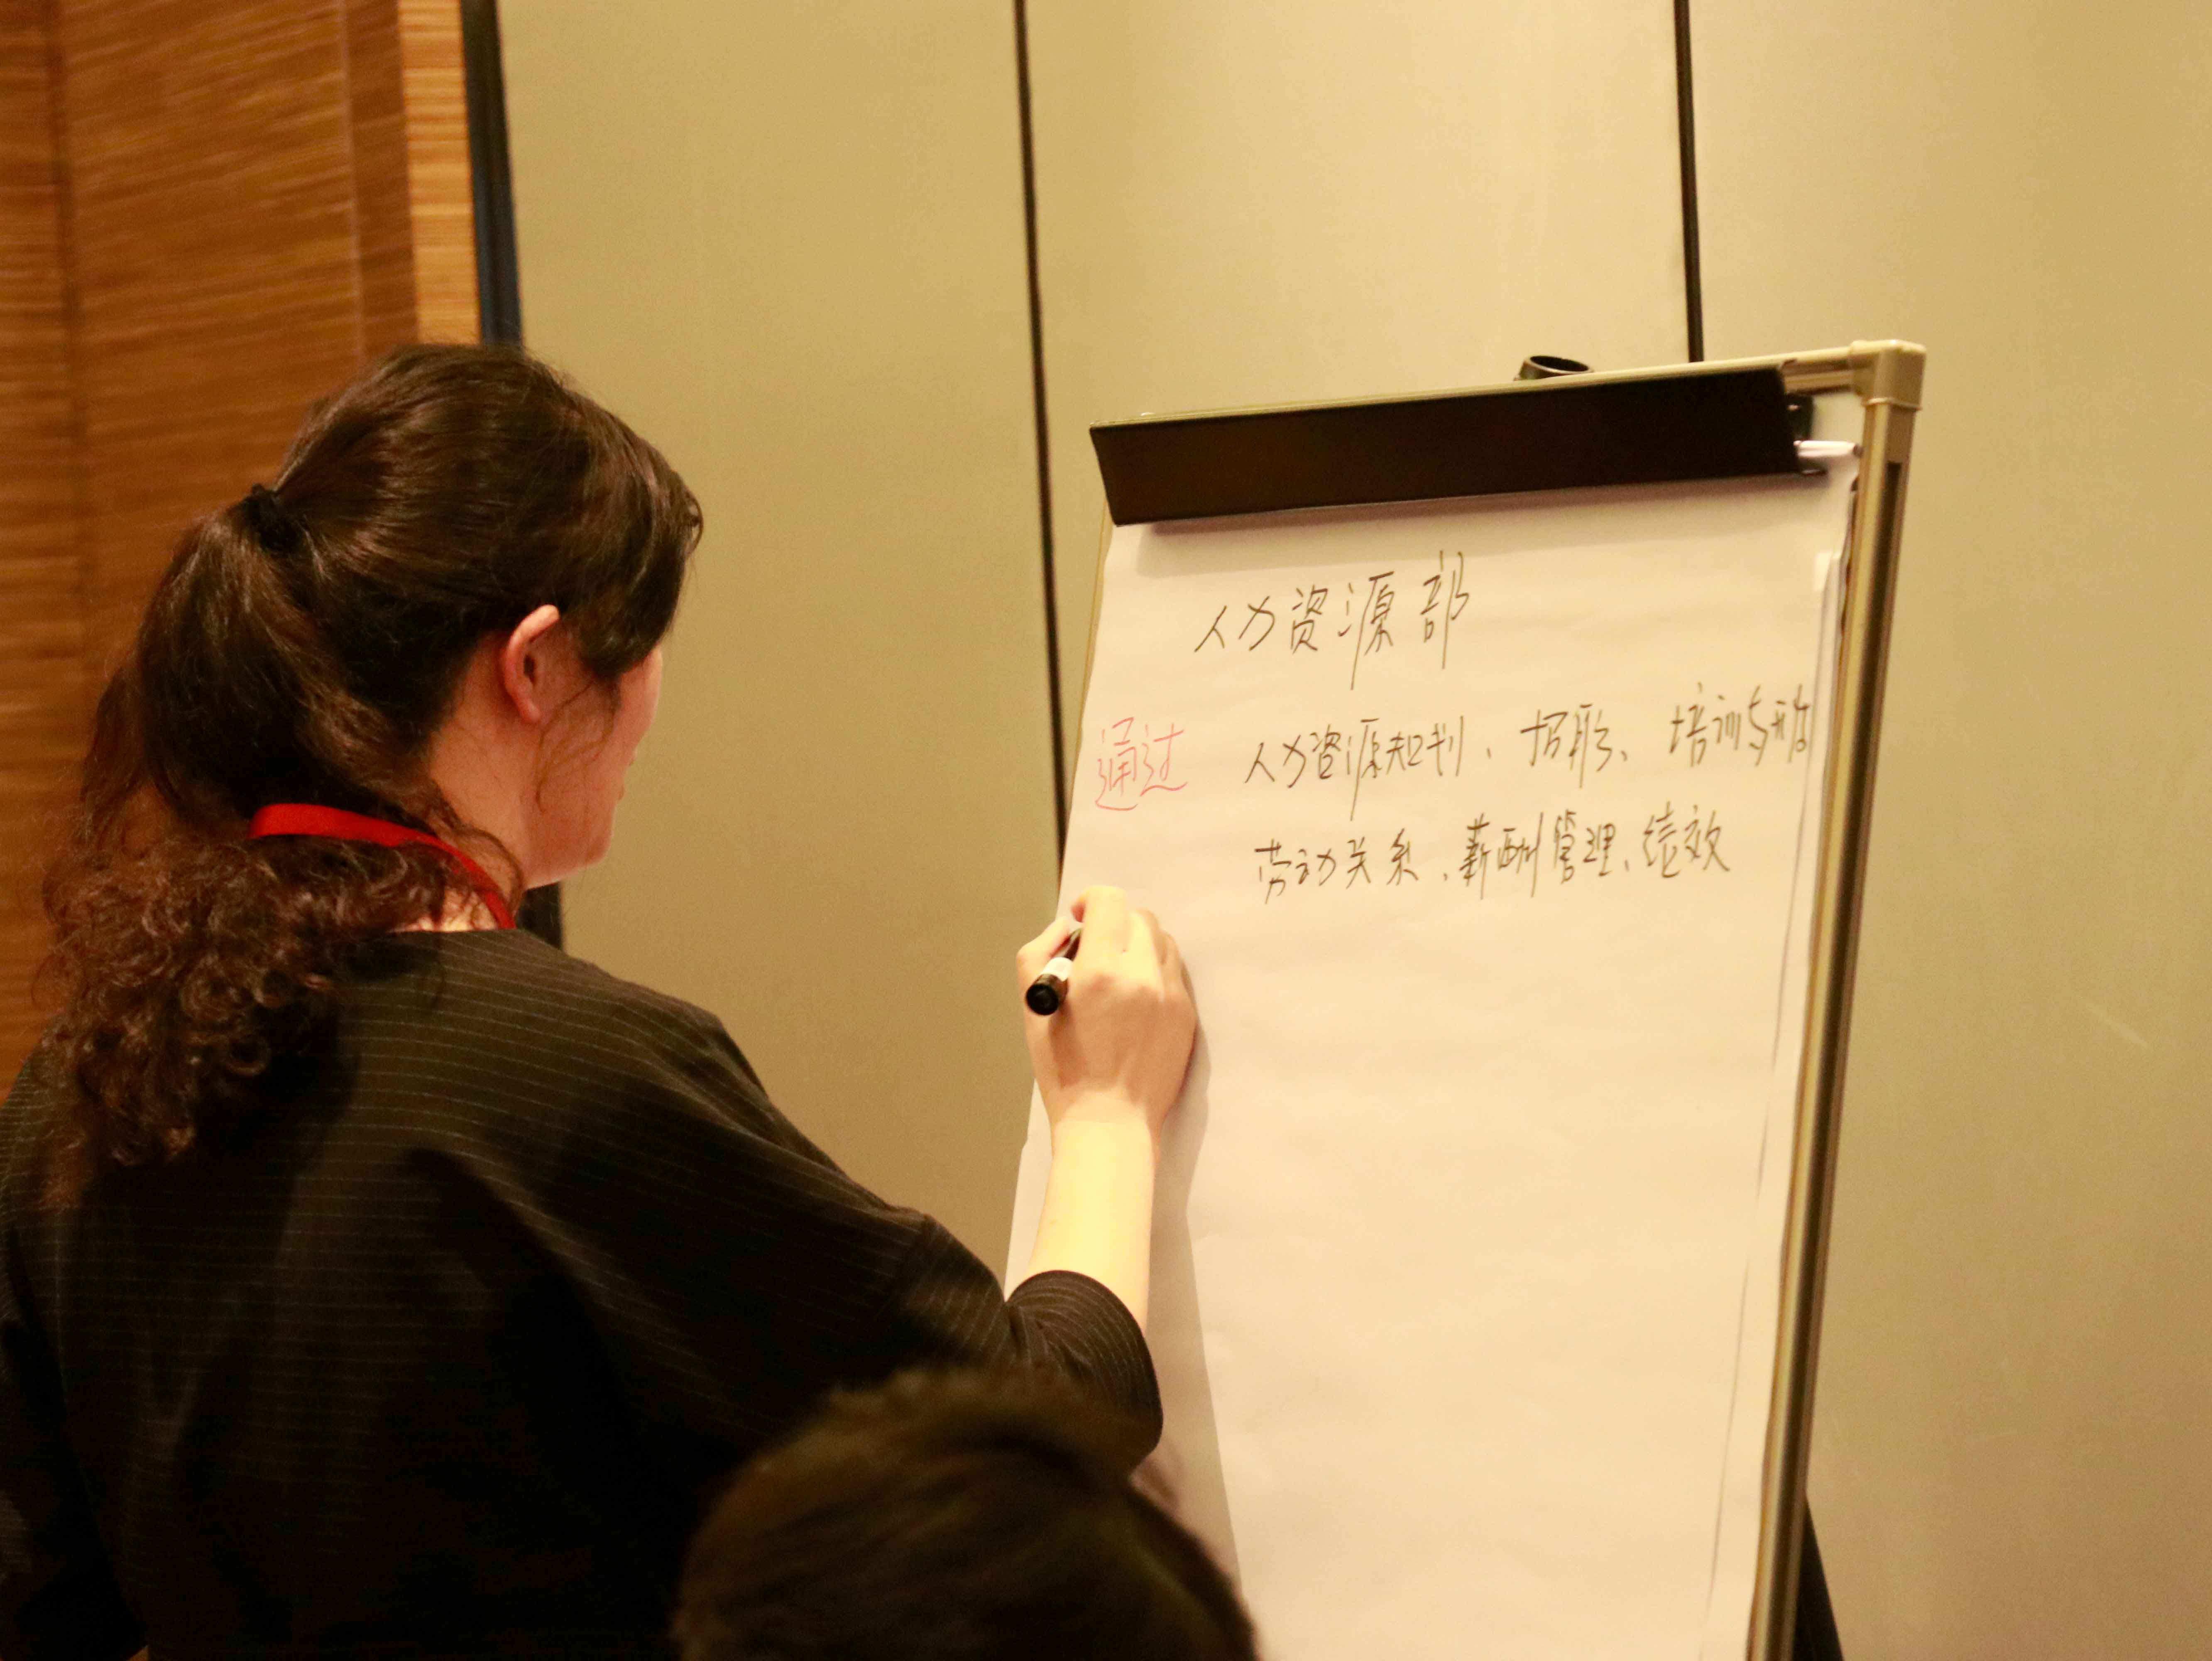 人力资源部
通过 人力资源规划、招聘、培训与
劳动关系、薪酬管理、绩效